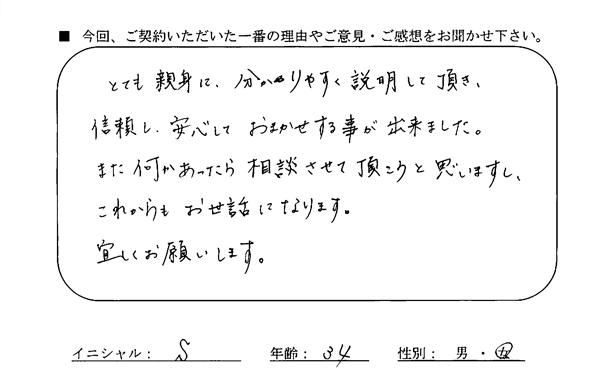 ■ 今回、ご契約いただいた一番の理由やご意見・ご感想をお聞かせ下さい。
とても親身に、分かりやすく説明して頂き、
信頼し、安心しておまかせする事が出来ました。
また何かあったら相談させて頂こうと思いますし、
これからもお世話になります。
宜しくお願いします。
イニシャル： S 年齢： 34 性別： 男 ・ 女